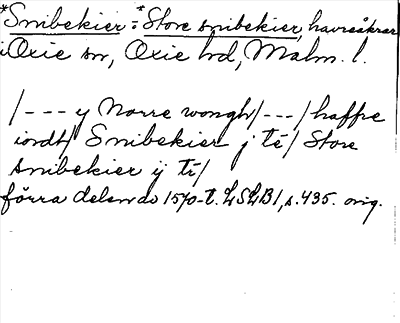 *Smibekier = *Store smibekier, havreåkrar
i Oxie sn, Oxie hd, Malm. l.
/--- y Norre wongh/---/haffre
iordt/ Smibekier j té/ Store
smibekier ij té/
förra delen av 1570-t. LSLB1, s. 435. orig.